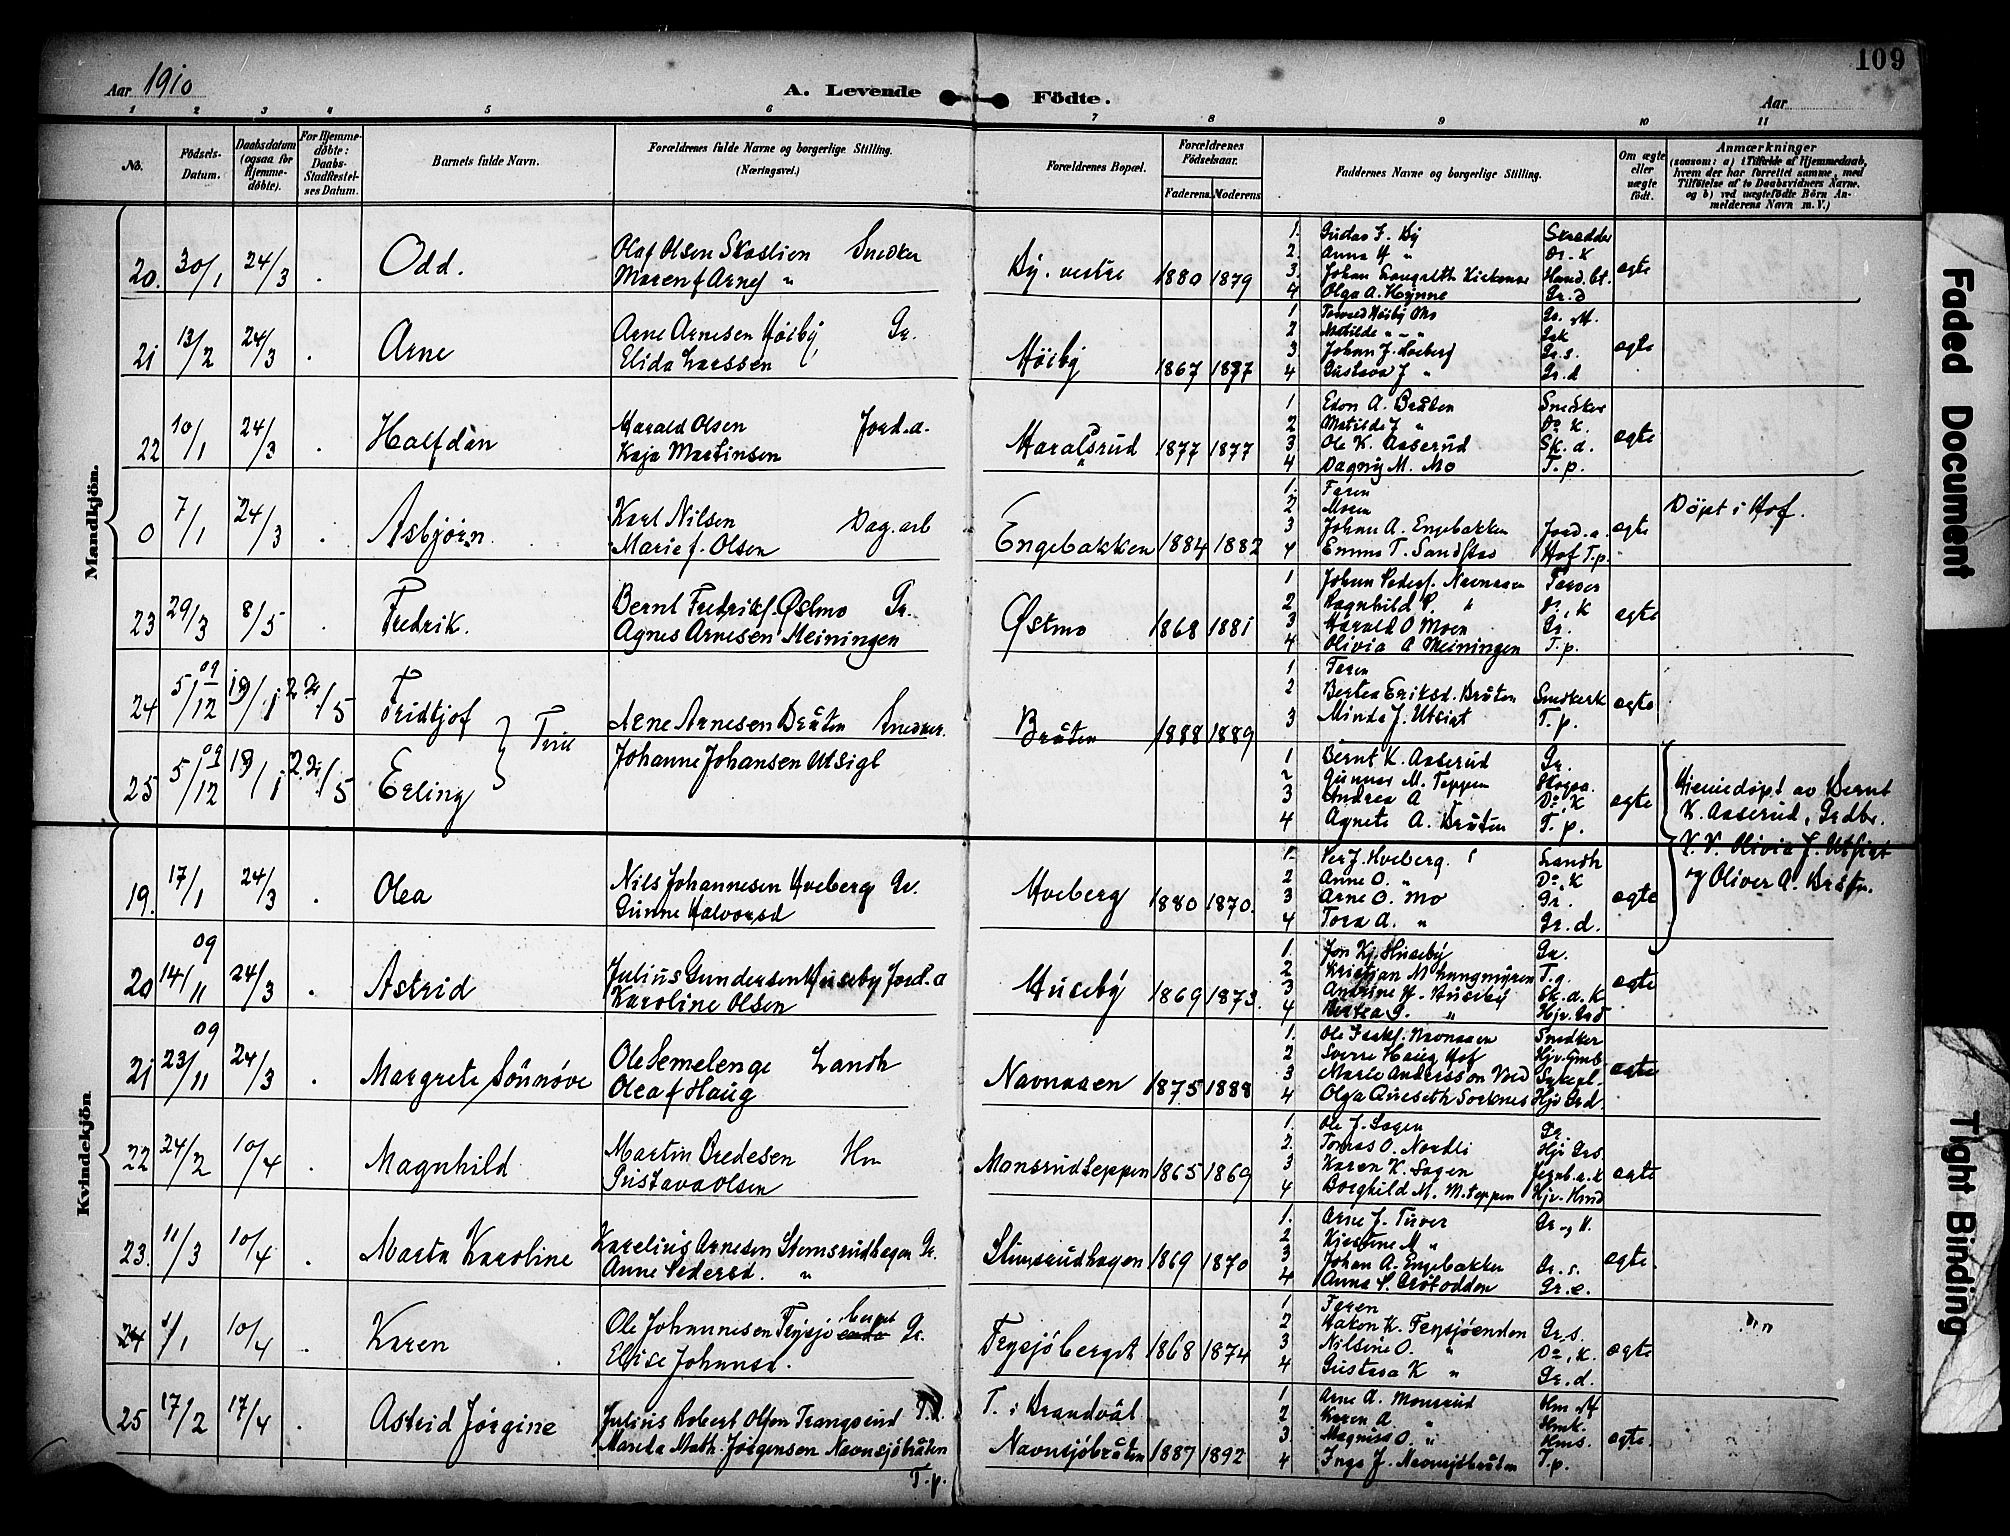 109
Aar 1910
A. Levende Födte.
Aar
1 2 3 4 5 6 7 8 9 10 11
No. Födsels-Datum. Daabsdatum (ogsaa for Hjemme-döbte). For Hjemme-döbte: Daabs-Stadfæstel-ses Datum. Barnets fulde Navn. Forældrenes fulde Navne og borgerlige Stilling. (Næringsvei.) Forældrenes Bopæl. Forældrenes Födselsaar. Faderens Moderens Faddernes Navne og borgerlige Stilling. Om ægte eller uægte födt. Anmærkninger (saasom: a) i Tilfælde af Hjemmedaab, hvem der har forrettet samme, med Tilföielse af to Daabsvidners Navne, og b) ved uægtefödte Börn An-melderens Navn m. V.)
Mandkjön.
20. 30/1 24/3 . Odd. Olaf Olsen Skaslien Snedker
Maren f Arnes "
By. vestre 1880 1879
1. Gudar F. By Skrædder
2. Anna H " Do. K
3. Johan Kirkenær Hand. bt.
4 Olga A. Hynne Gr. D
egte
21 13/2 24/3 . Arne Arne Arnesen Høiby Gr.
Elida Larssen
Høiby 1867 1877
1 Høiby Mo Gr. M.
2 Matilde " - " Grk
3 Johan J. Hveberg Gr. s.
4 Gustava J " Gr. d
egte
22 10/1 24/3 . Halfdan Harald Olsen Jord.a.
Kaja Martinsen
Haralsrud 1877 1877
1 Eton A. Bråten Snedker
2 Matilde J " Do K.
3 Ole K. Aaserud Sk. a.
4 Dagny M. Mo T. p.
egte
0 7/1 24/3 . Asbjørn. Karl Nilsen Dag. arb
Marie f. Olsen
Engebakken 1884 1882
1. Faren
2 Moren
3 Johan A. Engebakken Jord. a.
4 Emma T. Sandstad Hof T.p.
egte
Döpt i Hof.
23 29/3 8/5 . Fredrik. Bernt Fredriks. Østmo Gr.
Agnes Arnesen Meiningen
Østmo 1868 1881
1 Johan Peders. Navnaaen Farver
2 Ragnhild P. " Do, K
3 Harald O Moen Gr.
4 Olivia A Meiningen T. p.
egte
24 5/12 09 19/1 22/5 Fridtjof } Tvil Arne Arnesen Bråten Snedker.
Johanne Johansen Utsigt
Bråten 1888 1889
1 Faren
2 Bertea Eriksd. Bråten Snedkerk
3 Minda J. Utsigt T. p.
egte
25 5/12 09 19/1 22/5 Erling
1 Bernt K. Aaserud Gr.
2 Gunnar M. Teppen Skogsa.
3 Andrea A Do K
4 Agnete A. Bråten T. p.
egte
Hjemmedøpt av Bernt
K. Aaserud, Grdbr.
V. V. Olivia J. Utsigt
og Oliver A. Bråten.
Kvindekjön
19. 17/1 24/3 . Olea Nils Johannesen Hveberg Gr.
Gunne Halvorsd
Hveberg 1880 1870.
1. Per J. Hveberg. Landh
2 Anne O. " Do, K
3 Arne O. Mo Gr.
4 Tora A. " Gr. d.
egte
20 14/11 09 24/3 . Astrid Julius Gundersen Huseby Jord. a
Karoline Olsen
Huseby 1869 1873.
1. Jon Kj. Huseby Gr.
2 Kristian M Lungmyren T. g.
3 Andrine H. Huseby Sk. a. K
4 Bertea G. " Hjv. Grd
egte
21 23/11 09 24/3 . Margrete Sönnöve Ole Semelenge Landh
Olea f Haug
Navnaaen 1875 1888
1. Ole Isaks. Navnaaen Snedker
2 Sverre Haug Hof Hjv. Gmb
3 Marie Andersson Vold Sykepl.
4 Olga Sorknes Hjv Grd.
egte
22 24/2 10/4 . Magnhild Martin Bredesen Hm
Gustava Olsen
Monsrudteppen 1865 1869
1. Ole J. Sagen Gr
2. Tomas O. Nordli Hjv Grs
3 Karen K. Sagen
4 Borghild M. M.teppen Hjv. Hmd
egte
23. 11/3 10/4 . Marta Karoline Karelius Arnesen Stemsrudhagen Gr.
Anne Pedersd. "
Stemsrudhagen 1869 1870
1. Arne J. Tuver Gr. og K.
2 Kjerstine M "
3 Johan A. Engebakken Gr. s.
4 Anna S. Gr. e.
egte.
24 1/1 10/4 . Karen Ole Johannesen Frysjöberget Gr.
Elise Johansd.
Frysjöberget 1868 1874
1 Faren
2 Hakon K. Frysjöenden Gr. s.
3 Nilsine O. " Do, K.
4 Gustava K " Gr. d.
egte
25 17/2 17/4 . Astrid Jörgine Julius Robert Olsen Trangsrud T.
Marda Math. Jörgensen Navnsjöbråten
T. p.
T. i Brandval
Navnsjöbråten 1887 1892
1 Arne A. Monsrud Hm M
2 Karen A. " Hmk.
3. Magnus O. " Hms.
4 Inga J. Navnsjöbråten T.p.
egte.
Faded Document
Tight Binding